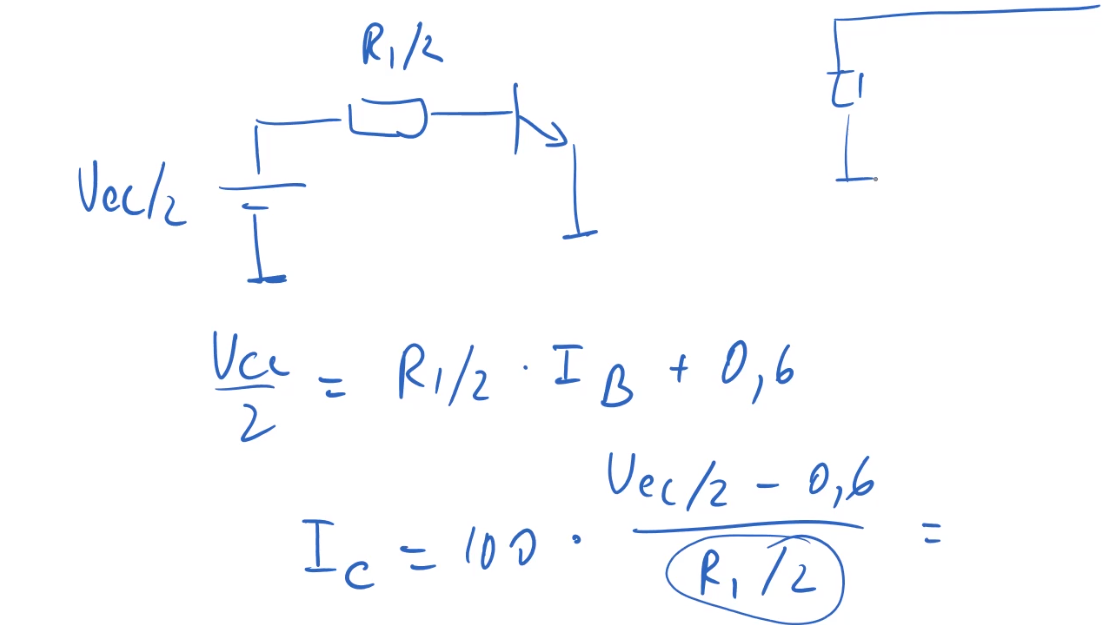 R₁/2
t1
Vcc/2
Vcc/2 = R₁/2 · I_B + 0,6
I_C = 100 · (Vcc/2 - 0,6)/(R₁/2) =